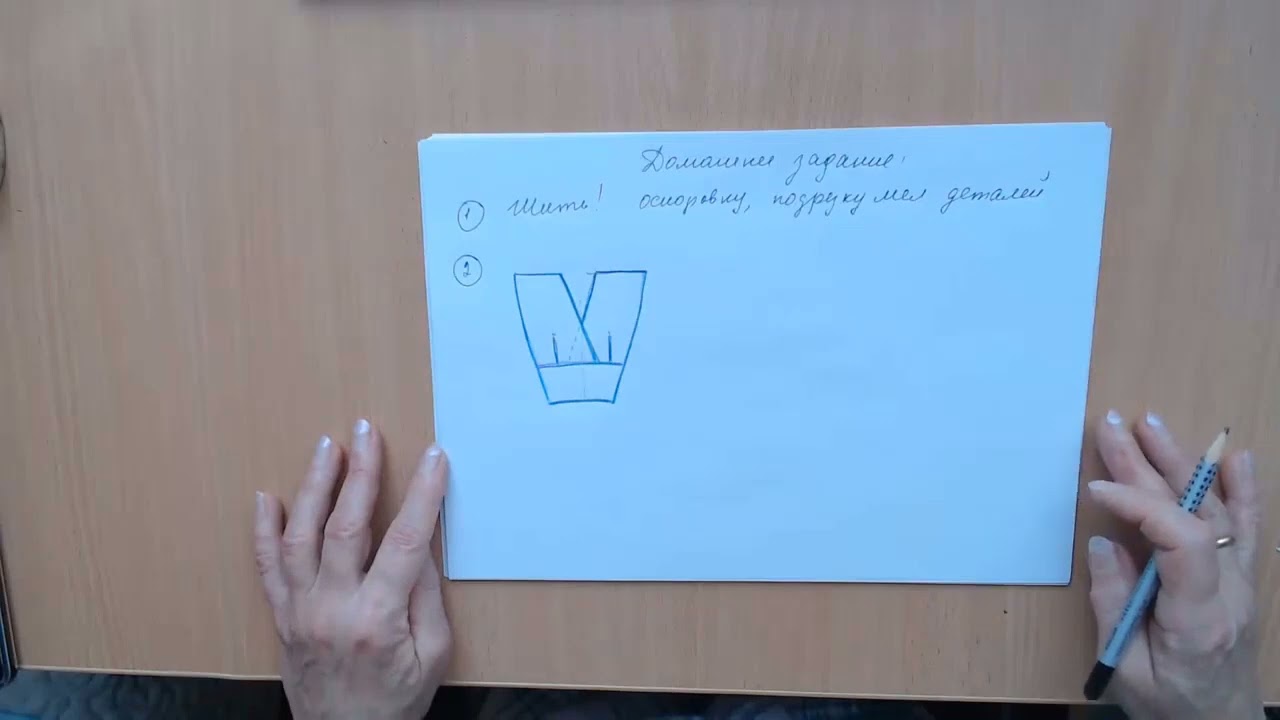 Домашнее задание:
1 Шить! осноровку, мел деталей
2